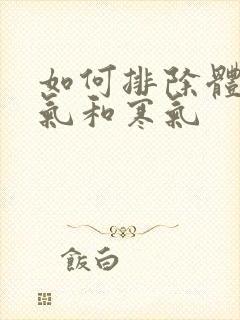 如何排除體
氣和寒氣
飯白